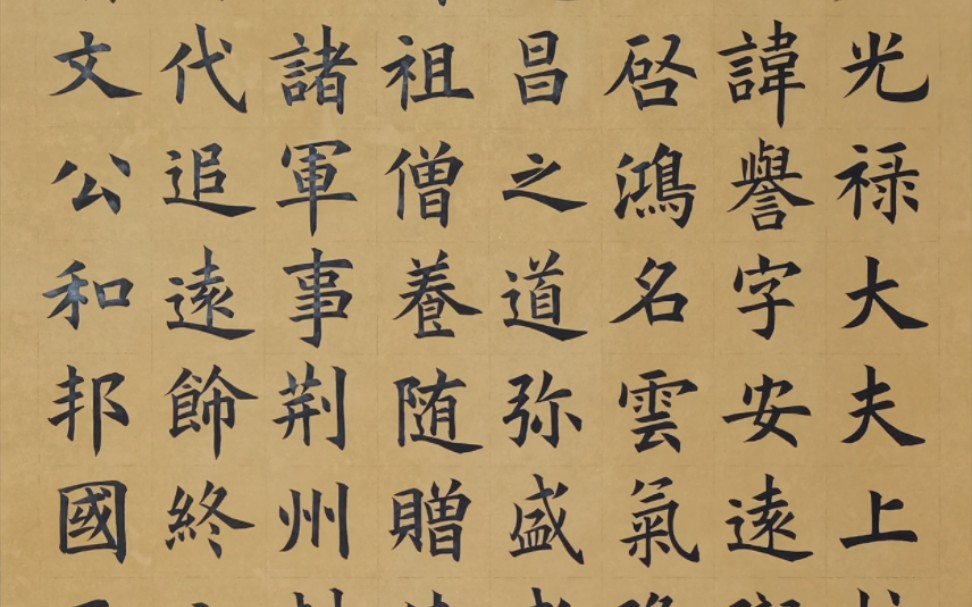 光禄大夫上
諱譽字安遠
啓鴻名雲氣
昌之道弥盛
祖僧養随贈
諸軍事荆州
代追遠餙終
文公和邦國